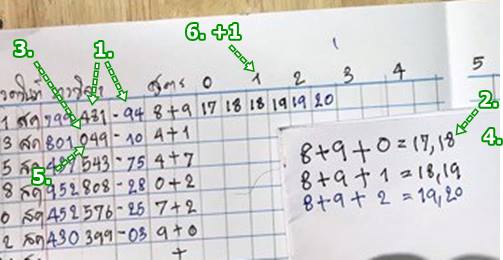 6. +1
3. 1.
สูตร 0 1 2 3 4 5
1 สค 799 481 - 94 8+9 17 18 18 19 19 20
3 สค 801 049 - 10 4+1
5 สค 543 - 75 4+7
8 สค 952 808 - 28 0+2
0 สค 452 576 - 25 7+2
2 สค 430 399 - 03 9+0
+
5.
2.
4.
8+9+0=17,18
8+9+1=18,19
8+9+2=19,20